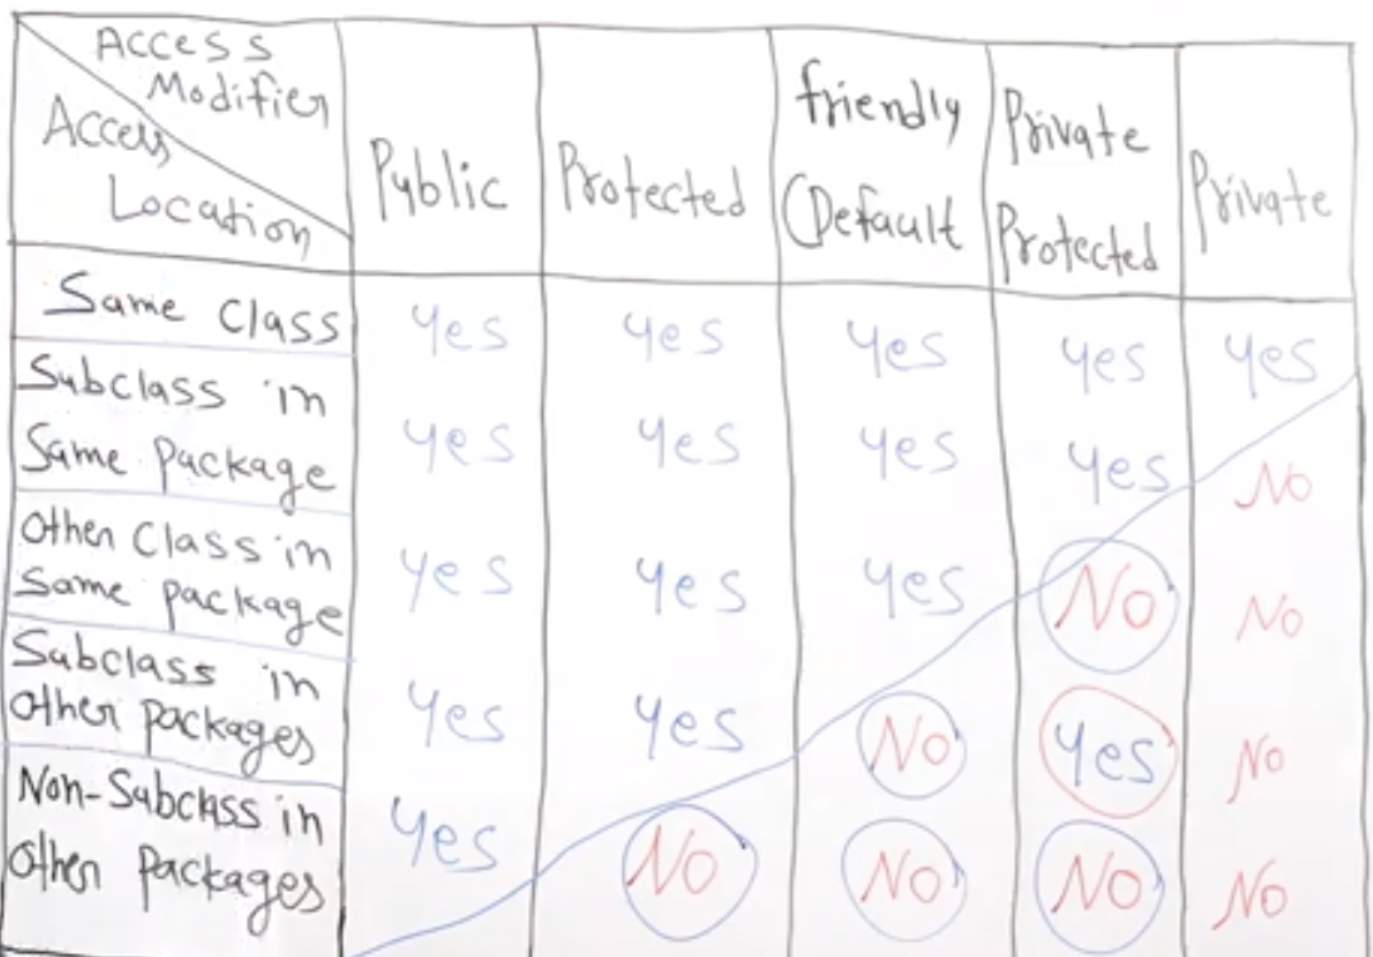 Access
Modifier
Access
Location
Public
Protected
friendly
(Default
Private
Protected
Private
Same Class
Yes Yes Yes Yes Yes
Subclass in
Same Package
Yes Yes Yes Yes No
Other Class in
Same package
Yes Yes Yes No No
Subclass in
Other packages
Yes Yes No Yes No
Non-Subclass in
Other Packages
Yes No No No No